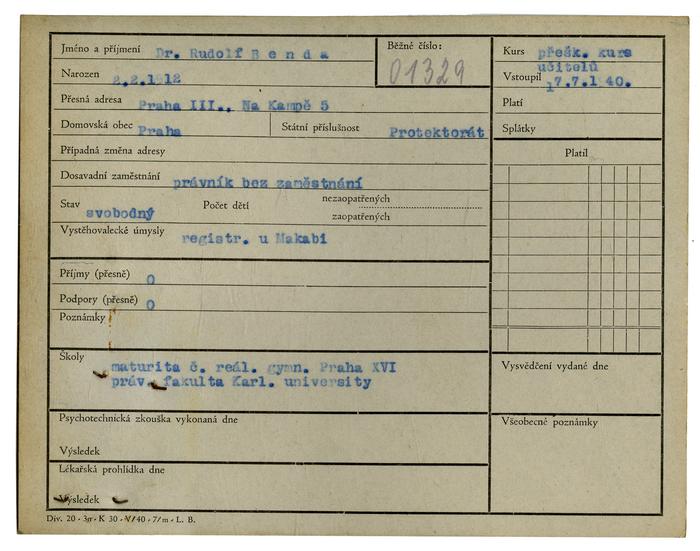 Jméno a příjmení Dr. Rudolf B e n d a
Narozen 2.2.1912
Přesná adresa Praha III., Na Kampě 5
Domovská obec Praha Státní příslušnost Protektorát
Případná změna adresy
Dosavadní zaměstnání právník bez zaměstnání
Stav svobodný Počet dětí nezaopatřených
zaopatřených
Vystěhovalecké úmysly registr. u Makabi
Příjmy (přesně) 0
Podpory (přesně) 0
Poznámky
Školy
maturita č. reál. gymn. Praha XVI
práv. fakulta Karl. university
Psychotechnická zkouška vykonaná dne
Výsledek
Lékařská prohlídka dne
Výsledek
Běžné číslo:
01329
Kurs přešk. kurs
učitelů
Vstoupil 17.7.1940.
Platí
Splátky
Platil
Vysvědčení vydané dne
Všeobecné poznámky